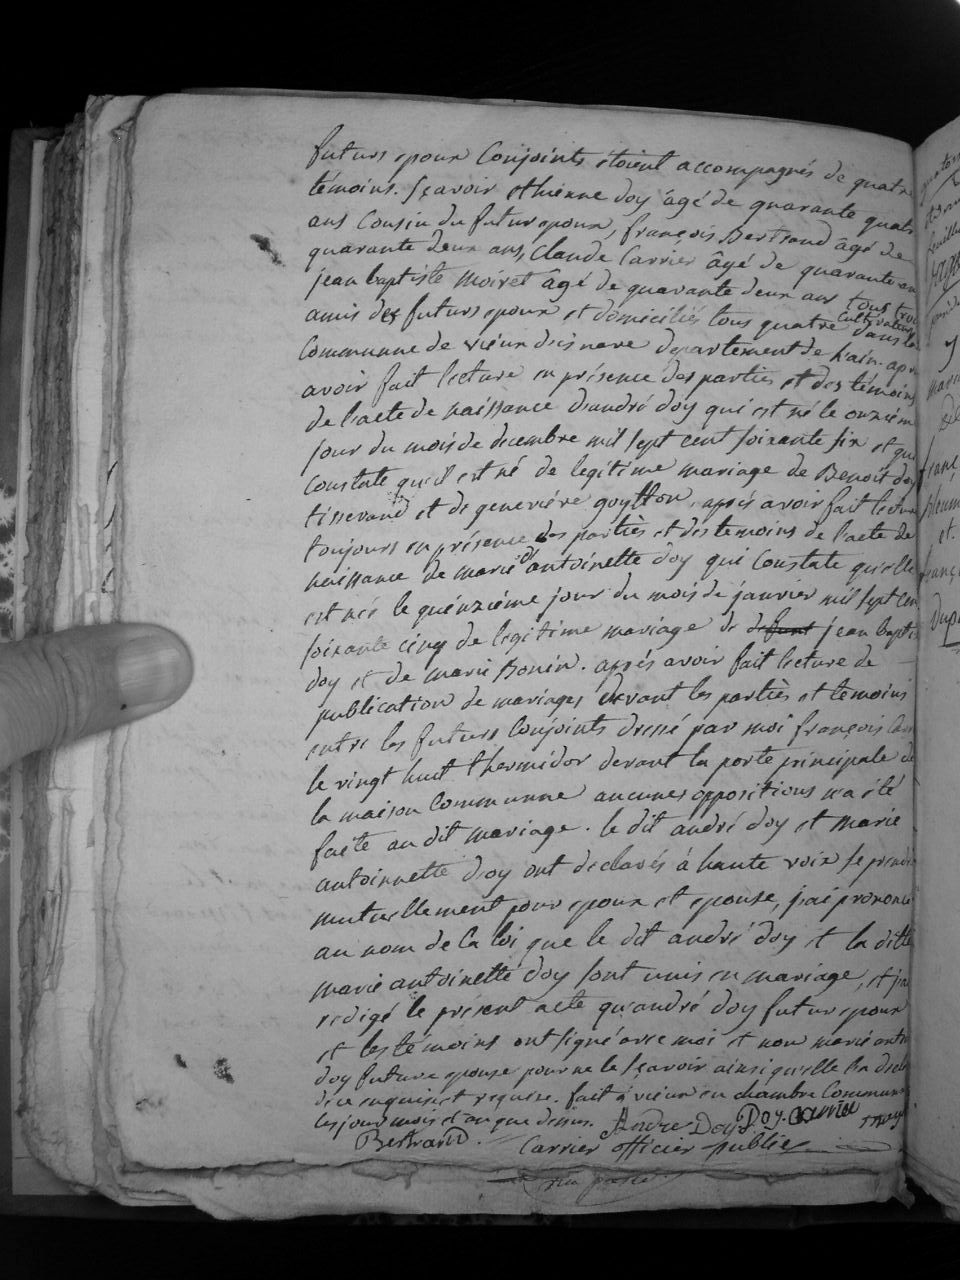 futurs epoux Conjoints étoient accompagnés de quatre
témoins. sçavoir ethienne doy âgé de quarante quatre
ans Cousin du futur epoux, françois Bertrand âgé de
quarante deux ans, Claude Carrier âgé de quarante
jean baptiste moiret âgé de quarante deux ans tous trois
amis des futurs epoux et domiciliés tous quatre cultivateurs dans la
Communne de vieux disnave departement de l'ain. apres
avoir fait lecture en présence des parties et des témoins
de l'acte de naissance d'andré doy qui est né le onzième
jour du mois de decembre mil sept cent soixante six et qui
Constate qu'il est né de legitime mariage de Benoit doy
tisserand et de genevieve goytton, après avoir fait lecture
toujours en présence des parties et des temoins de l'acte de
naissance de marie antoinette doy qui Constate qu'elle
est née le quénzième jour du mois de janvier mil sept cent
soixante cinq de legitime mariage de defunt jean baptiste
doy et de marie Bonin. après avoir fait lecture de
publication de mariages devant les partiès et temoins
entre les futurs Conjoints dressé par moi françois Carrier
le vingt huit thermidor devant la porte principale de
la maison Communne aucunes oppositions n'a été
faite au dit mariage. le dit andré doy et marie
antoinette doy ont declarés à haute voix se prendre
mutuellement pour epoux et epouse, j'ai prononcé
au nom de la loi que le dit andré doy et la ditte
marie antoinette doy sont unis en mariage, et j'ai
redigé le présent acte qu'andré doy futur epoux
et les témoins ont signé avec moi et non marie antoinette
doy future epouse pour ne le sçavoir ainsi qu'elle l'a declaré
de ce enquise et requise. fait à vieux en chambre Communne
les jour mois et an que dessus. Andre Doy Doy. Carrier
Bertrand. Carrier officier public